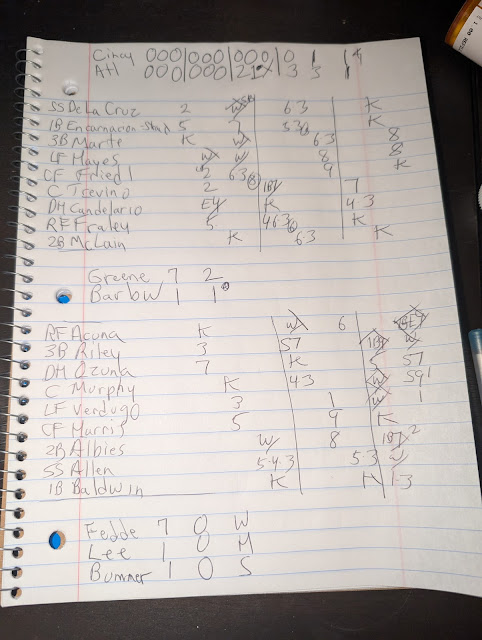 Cincy 000|000|000| 0 1 1 4
Atl 000|000|21X 3 3 1
SS De La Cruz 2 W SB 63 K
1B Encarnacion-Strand 5 7 53 K
3B Marte K 63 8
LF Hayes W W 8 8
CF Friedl 2 63 9 K
C Trevino 2 1B7 7
DH Candelario E4 K 43
RF Fraley 5 463 K
2B McLain K 63 K
Greene 7 2
Barlow 1 1
RF Acuna K W 6
3B Riley 3 57 1B W
DH Ozuna 7 K 57
C Murphy K 43 W 59!
LF Verdugo 3 1 W 1
CF Harris 5 9 K
2B Albies W 8 1B7 2
SS Allen 5-4-3 5-3 W
1B Baldwin K K 1-3
Fedde 7 0 W
Lee 1 0 H
Bummer 1 0 S